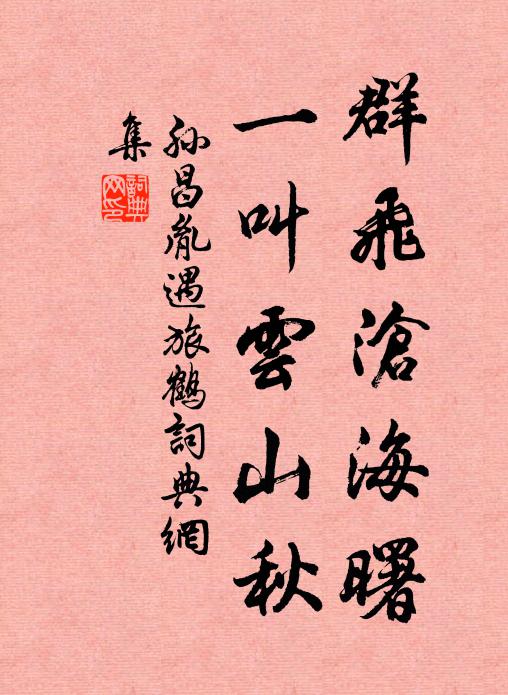 群飛滄海曙
一叫雲山秋
孫昌胤遇旅鶴詞典網
集
詞典
网印